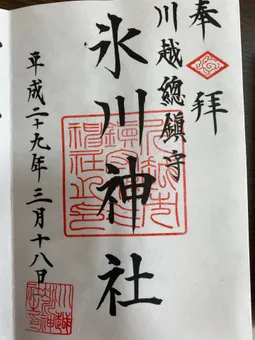 奉拜
川越總鎮守
氷川神社
平成二十九年三月十八日